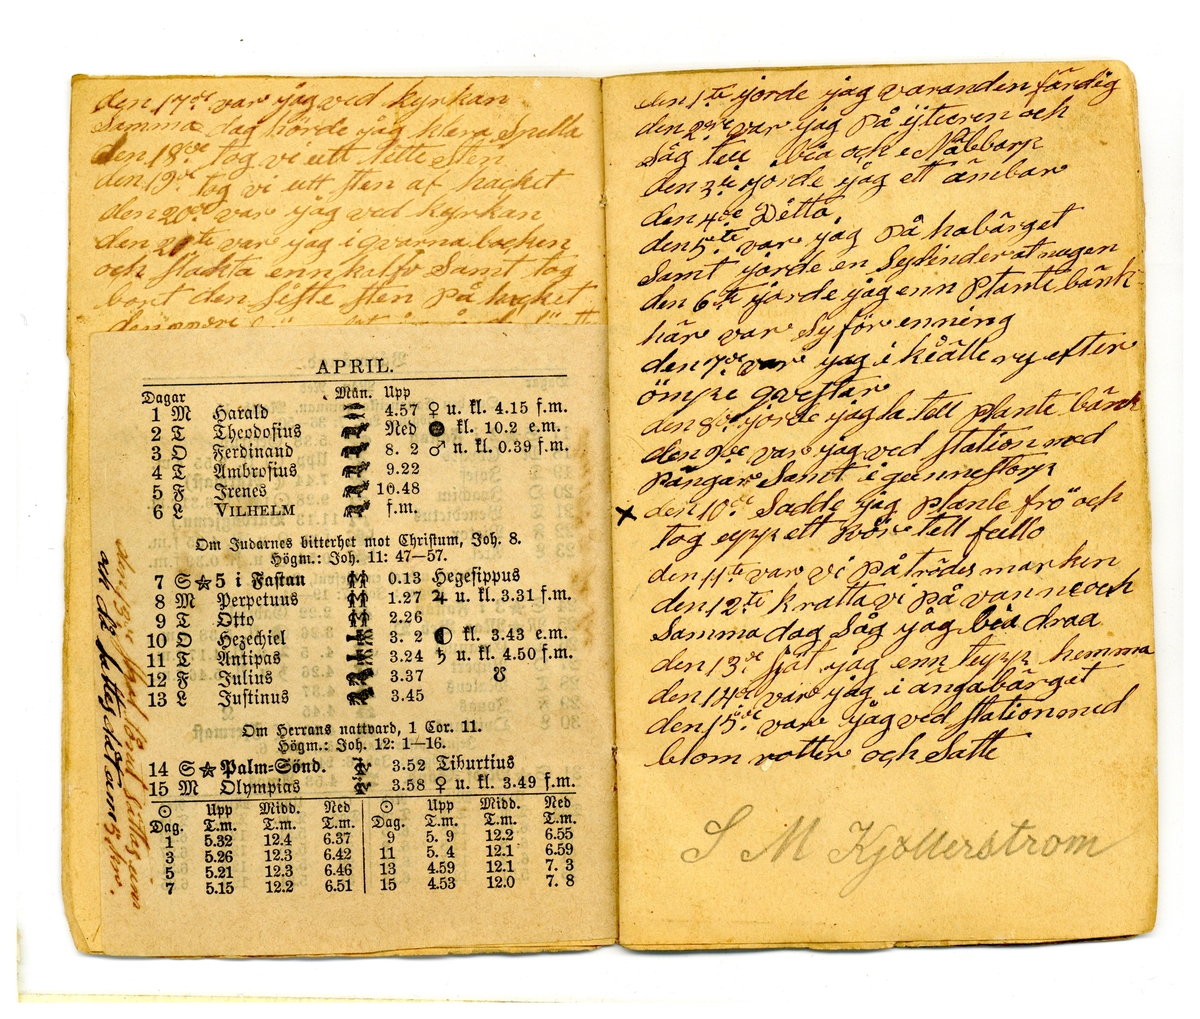 den 17de var jag ved kyrkan
Samma dag hörde jag klera Spella
den 18de tog vi ett litte sten
den 19de tog vi utt sten af hacket
den 20de var jag ved kyrkan
den 21te var jag i qvarna backen
och slackta enn kalfv Samt tog
bort den siste sten på hacket
APRIL.
Dagar Mån. Upp
1 M Harald 4.57 ♀ u. kl. 4.15 f.m.
2 T Theodosius Ned 🌑 kl. 10.2 e.m.
3 O Ferdinand 8. 2 ♂ n. kl. 0.39 f.m.
4 T Ambrosius 9.22
5 F Irenes 10.48
6 L VILHELM f.m.
Om Judarnes bitterhet mot Christum, Joh. 8.
Högm.: Joh. 11: 47—57.
7 S ☆ 5 i Fastan 0.13 Hegesippus
8 M Perpetuus 1.27 ♃ u. kl. 3.31 f.m.
9 T Otto 2.26
10 O Hezechiel 3. 2 ◐ kl. 3.43 e.m.
11 T Antipas 3.24 ♄ u. kl. 4.50 f.m.
12 F Julius 3.37 ☋
13 L Justinus 3.45
Om Herrans nattvard, 1 Cor. 11.
Högm.: Joh. 12: 1—16.
14 S ☆ Palm=Sönd. 3.52 Tiburtius
15 M Olympias 3.58 ♀ u. kl. 3.49 f.m.
☉ Upp Midd. Ned ☉ Upp Midd. Ned
Dag. T.m. T.m. T.m. Dag. T.m. T.m. T.m.
1 5.32 12.4 6.37 9 5. 9 12.2 6.55
3 5.26 12.3 6.42 11 5. 4 12.1 6.59
5 5.21 12.3 6.46 13 4.59 12.1 7. 3
7 5.15 12.2 6.51 15 4.53 12.0 7. 8
den 1te jorde jag varanden färdig
den 2dre var jag på ytteren och
Såg till bia och i Nabbarp
den 3di jorde jag ett ämbar
den 4de Ditto
den 5te var jag på habärget
Samt jorde en Sylinder at nagen
den 6te jorde jag enn Plante bänk
här var Syförenning
den 7de var jag i kiällery efter
ömpe qvestar
den 8de jorde jag la tell plante bänk
den 9de var jag ved station med
Pängar Samt i gunnestorp
x den 10de Sadde jag Plante frö och
tog upp ett rör tell fello
den 11te var vi på trädes marken
den 12te kratta vi på vannen och
Samma dag Såg jag bia draa
den 13de Såt jag enn tepp hemma
den 14de var jag i ängabärget
den 15de var jag ved station med
blom rotter och Satte
S M Kjöllerström